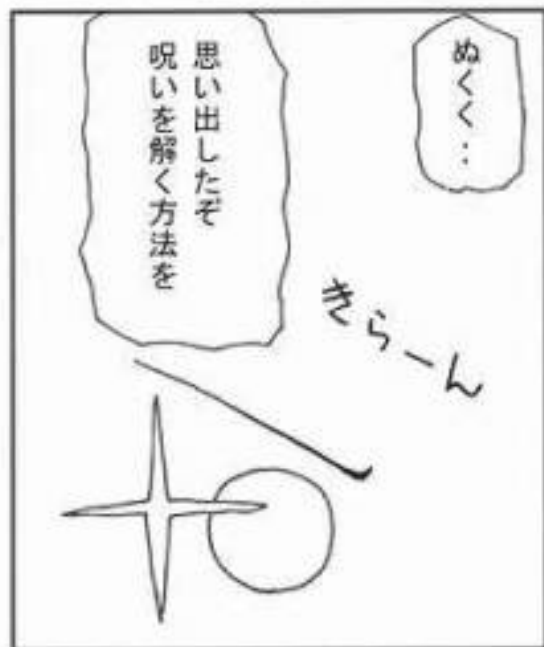 ぬくく‥
思い出したぞ
呪いを解く方法を
きらーん